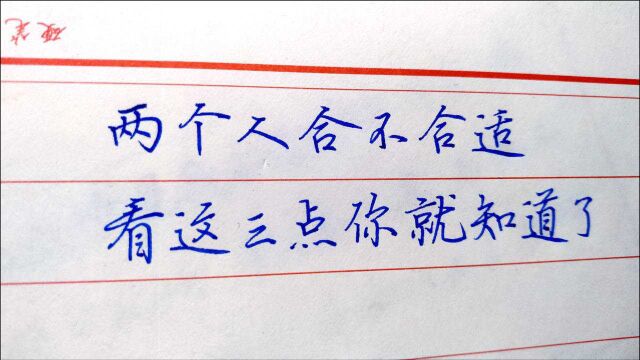 硬笔
两个人合不合适
看这三点你就知道了